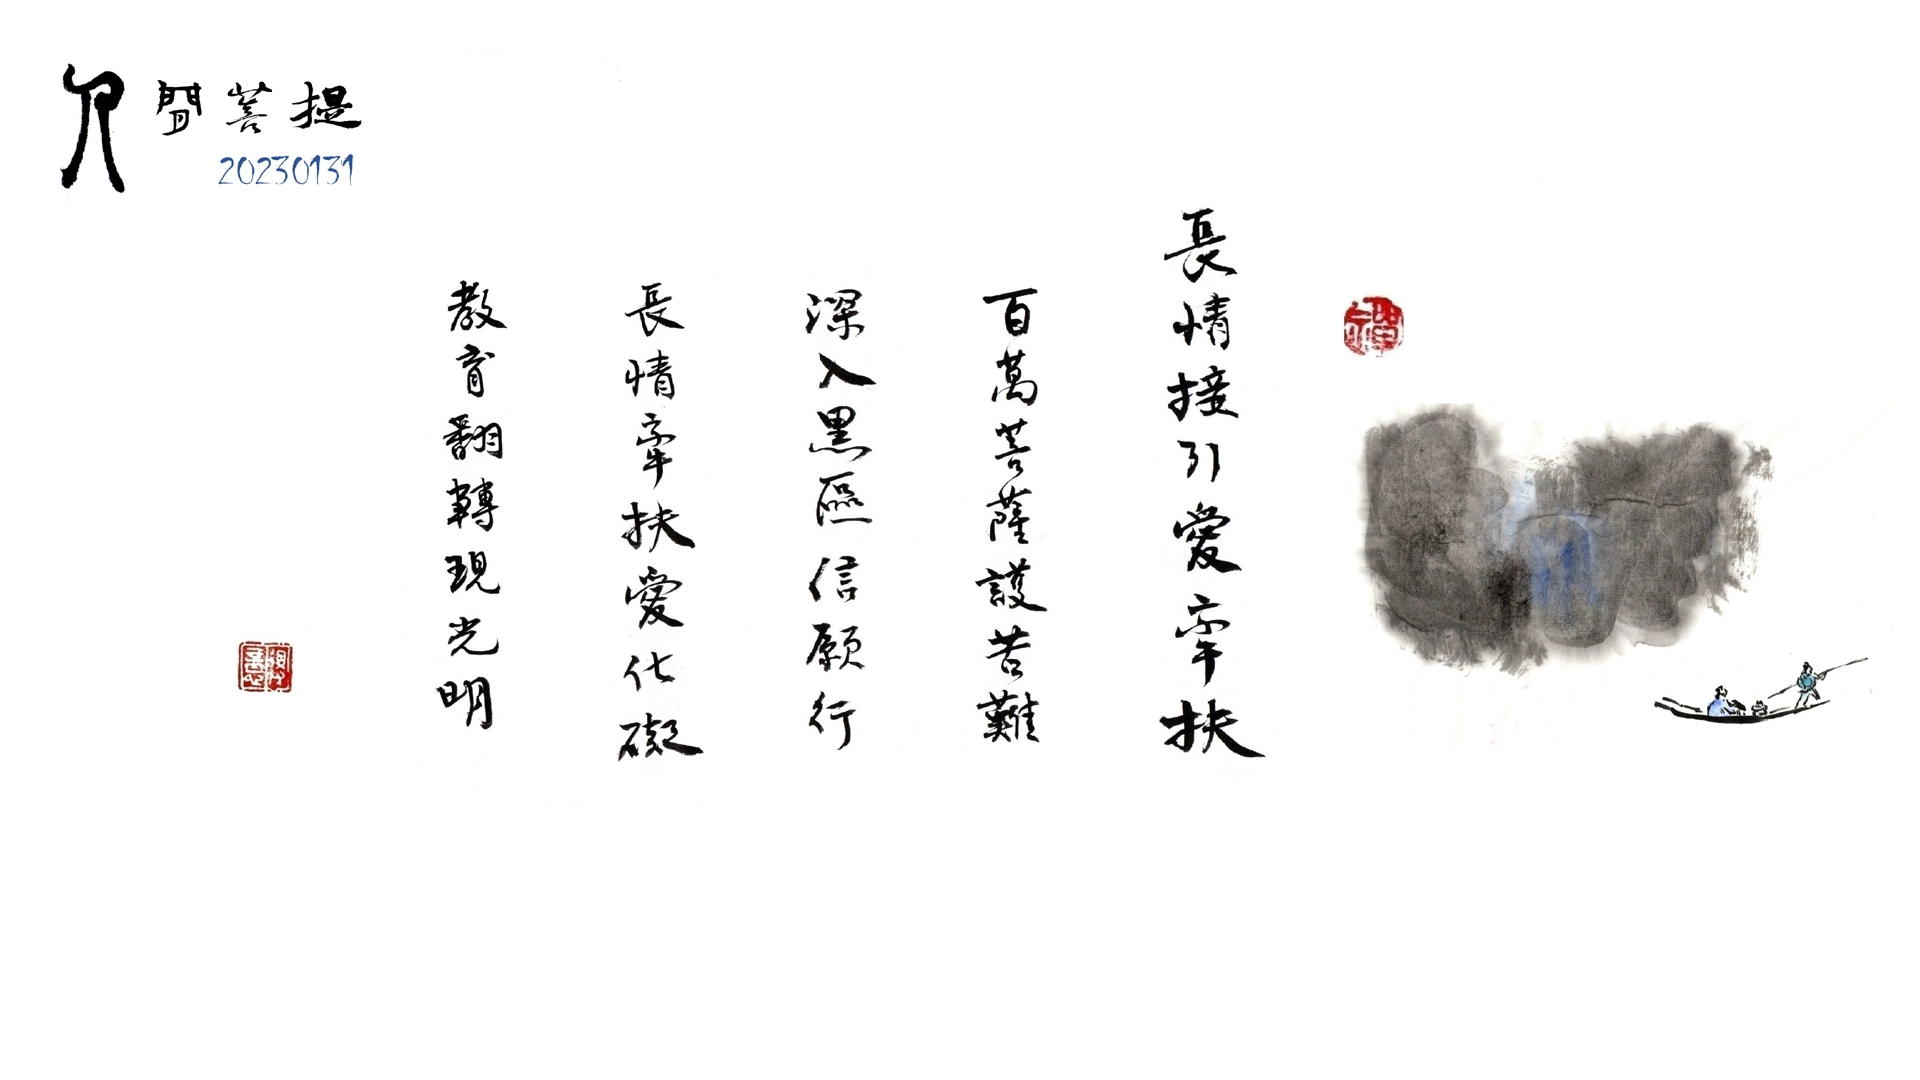 人間菩提
20230131
長情接引愛牽扶
百萬菩薩護苦難
深入黑區信願行
長情牽扶愛化礙
教育翻轉現光明